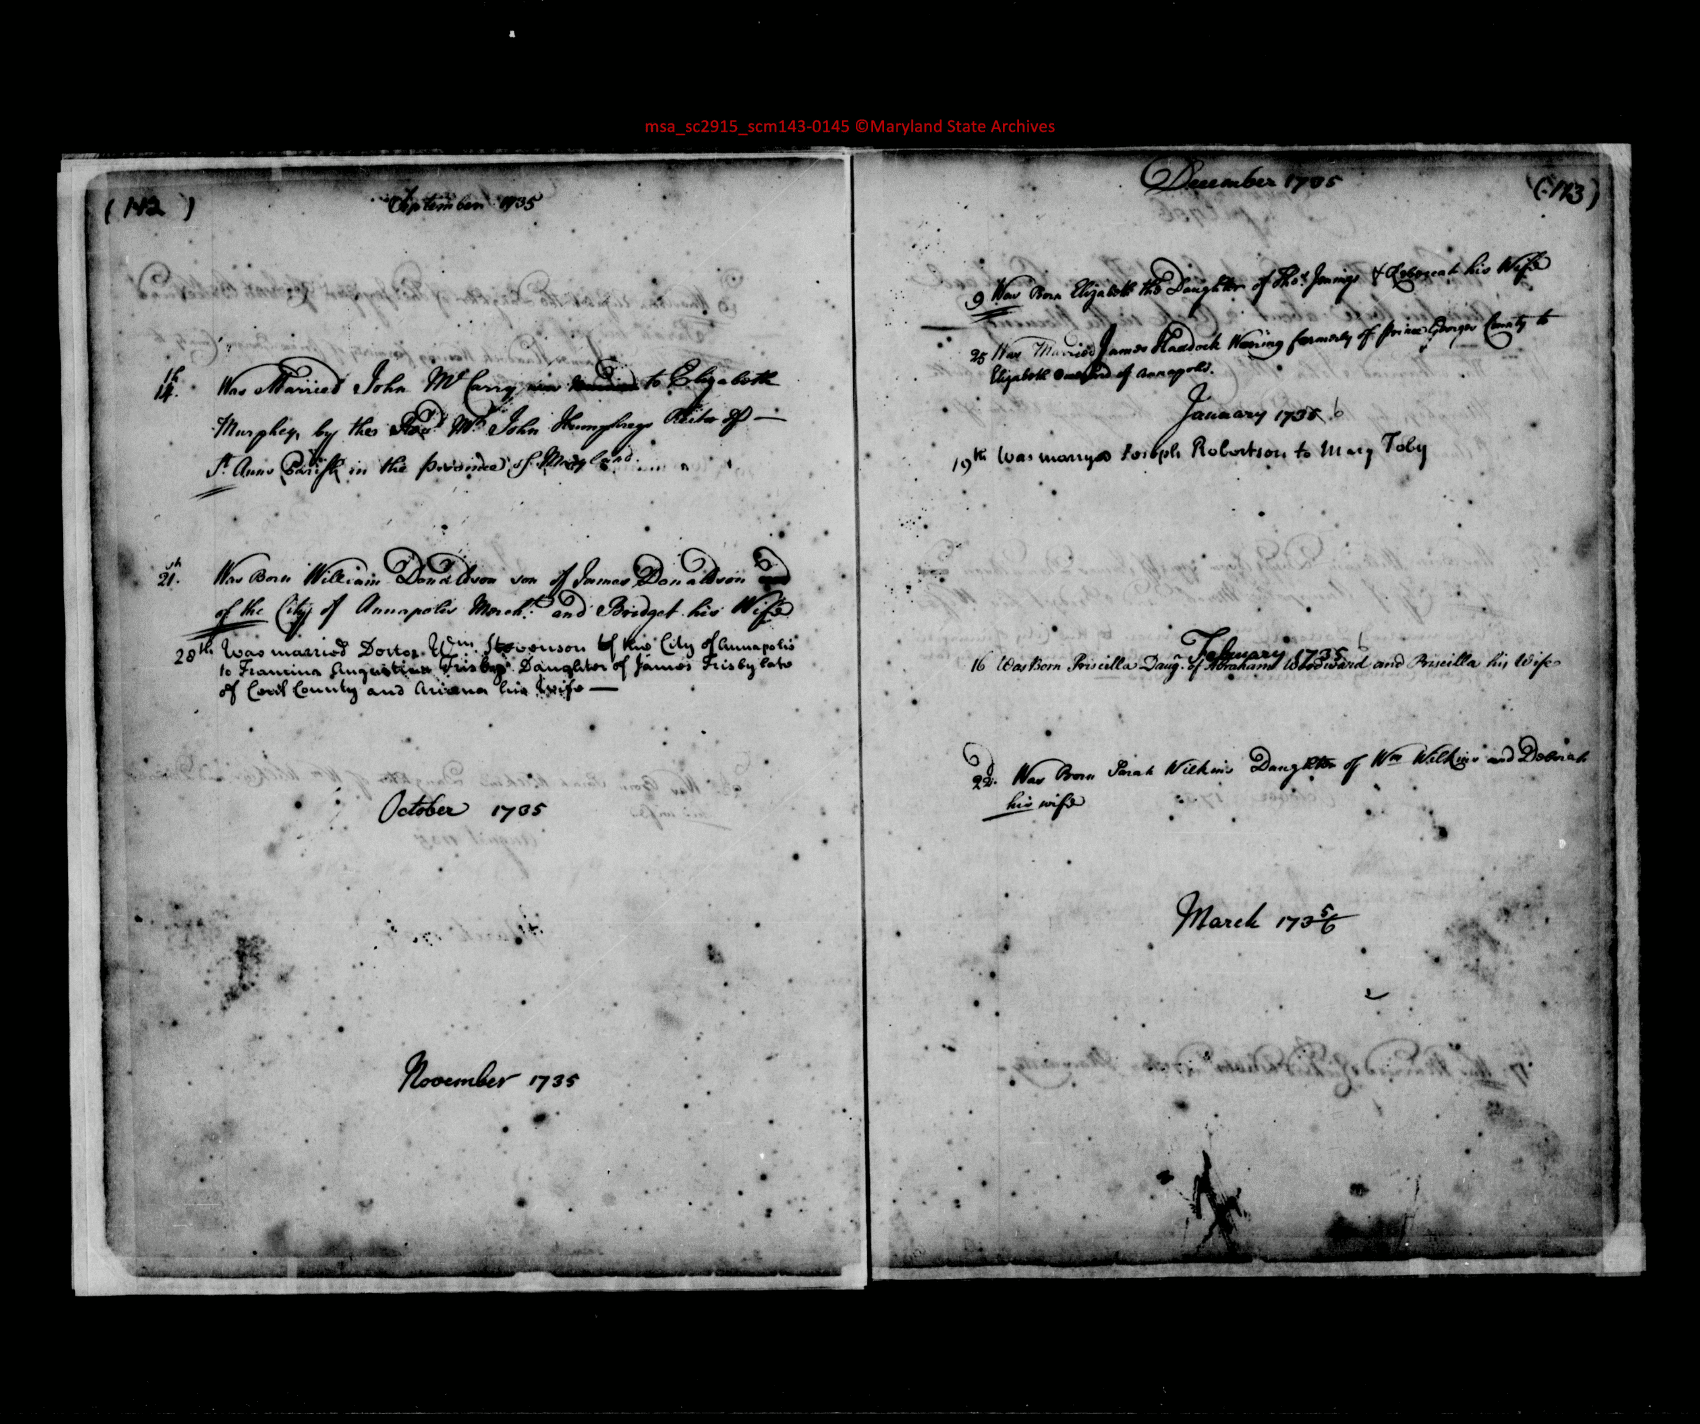 msa_sc2915_scm143-0145 ©Maryland State Archives
(142)
September 1735
14th. Was Married John McCarry to Elizabeth
Murphey, by the Revd. Mr. John Humphreys Rector of —
St. Anns Parish in the province of Maryland
21th. Was Born William Donaldson son of James Donaldson
of the City of Annapolis Mercht. and Bridget his Wife
28th Was married Doctor Wm. Stevenson of the City of Annapolis
to Francina Augustina Frisby Daughter of James Frisby late
of Cecil County and Ariana his wife —
October 1735
November 1735
December 1735
(143)
9 Was Born Elizabeth the Daughter of Thos. Jenings & Deboreah his Wife
25 Was Married James Haddock Waring formerly of prince Georges County to
Elizabeth of annapolis.
January 1735 6
19th Was marryed Joseph Robertson to Mary Toby
February 1735 6
16 Was Born Priscilla Daugr. of Abraham Woodward and Priscilla his Wife
22. Was Born Sarah Wilkins Daughter of Wm Wilkins and Deborah
his wife
March 1735/6